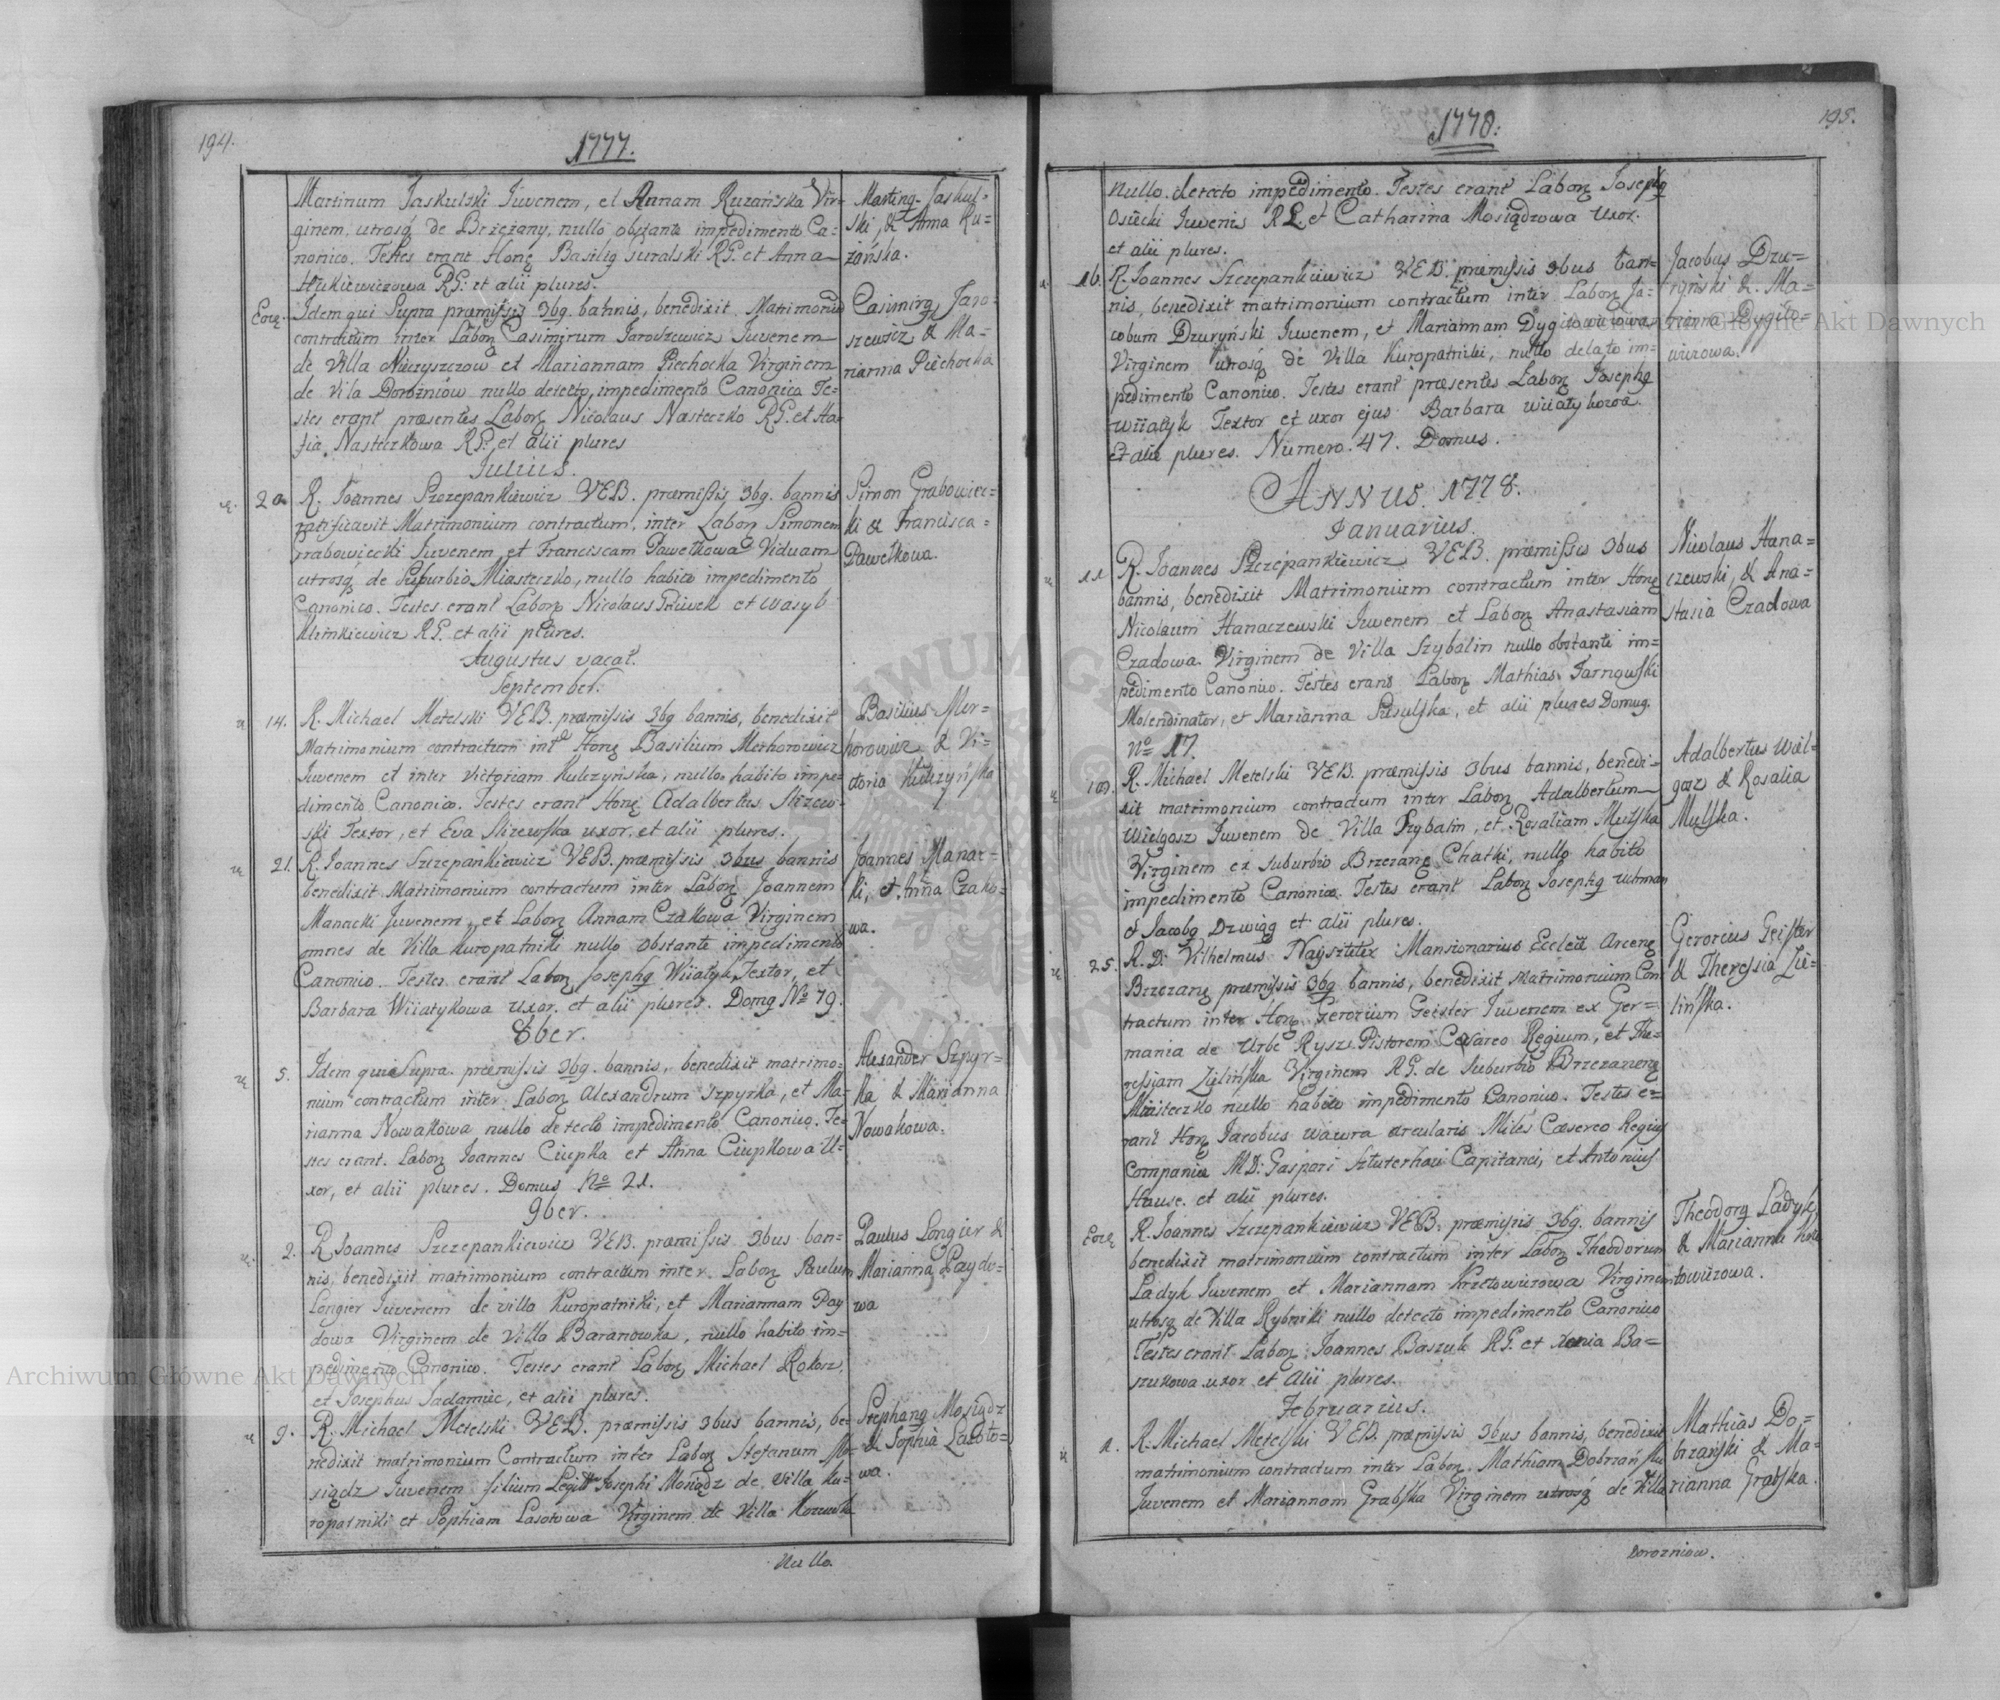 194.
1777.
Martinum Jaskulski Juvenem, et Annam Ruzańska Vir=
ginem, utrosq de Brzeżany, nullo obstante impedimento Ca=
nonico. Testes erant Hong Basilig Suralski RG. et Anna
RG: et alii plures.
Marting Jaskul=
ski, & Anna Ru=
zańska.
Eoq.
Idem qui Supra præmissis 3bg bannis, benedixit Matrimonium
contractum inter Labon Casimirum Jaroszewicz Juvenem
de Villa Mieczyszczow et Mariannam Piechocka Virginem
de Vila Dorożniow nullo detecto impedimento Canonico Te=
stes erant præsentes Labon Nicolaus Nasteczko RG. et Ha=
fia Nasteczkowa RG: et alii plures
Casimirg Jaro=
szewicz & Ma=
rianna Piechocka
Julius.
20
R. Joannes Szczepankiewicz VEB. præmissis 3bg. bannis
ratificavit Matrimonium contractum, inter Labon Simonem
Grabowiecki Juvenem et Franciscam Pawełkowa Viduam
utrosq de Suburbio Miasteczko, nullo habito impedimento
Canonico. Testes erant Labon Nicolaus et Wasyl
Klimkiewicz RG. et alii plures.
Simon Grabowiec=
ki & Francisca=
Pawełkowa.
Augustus vacat.
September.
14.
R. Michael Metelski VEB. præmissis 3bg bannis, benedixit
Matrimonium contractum int Hong Basilium Merhorowicz
Juvenem et inter Victoriam Kulczyńska, nullo habito impe=
dimento Canonico. Testes erant Hong Adalbertus
Textor, et Eva uxor, et alii plures.
Basilius Mer=
horowicz & Vi=
ctoria Kulczyńska
21.
R. Joannes Szczepankiewicz VEB. præmissis 3bus bannis
benedixit Matrimonium contractum inter Labon Joannem
Manacki Juvenem, et Labon Annam Czakowa Virginem
omnes de Villa Kuropatniki nullo obstante impedimento
Canonico. Testes erant Labon Josephg Wiiatyk Textor, et
Barbara Wiiatykowa uxor, et alii plures. Domg No 79.
Joannes Manac=
ki, et Anna Czako=
wa.
8ber.
5.
Idem qui Supra. præmissis 3bg. bannis, benedixit matrimo=
nium contractum inter Labon Alexandrum Szpyrka, et Ma=
rianna Nowakowa nullo detecto impedimento Canonico. Te=
stes erant. Labon Joannes Ciupka et Anna Ciupkowa U=
xor, et alii plures. Domus No 21.
Alexander Szpyr=
ka & Marianna
Nowakowa.
9ber.
2.
R Joannes Szczepankiewicz VEB. præmissis 3bus ban=
nis, benedixit matrimonium contractum inter Labon Paulum
Longier Juvenem de villa Kuropatniki, et Mariannam Pay
dowa Virginem de Villa Baranowka, nullo habito im=
pedimento Canonico. Testes erant Labon Michael Rokosz,
et Josephus Sadamiec, et alii plures.
Paulus Longier &
Marianna Paydo=
wa
9.
R. Michael Metelski VEB. præmissis 3bus bannis, be=
nedixit matrimonium Contractum inter Labon Stefanum Mo=
siądz Juvenem filium Legitt Josephi Mosiądz de Villa Ku=
ropatniki et Sophiam Lasotowa Virginem de Villa
Stephang Mosiądz
& Sophia Lasoto=
wa.
Nullo.
1778.
195.
nullo detecto impedimento. Testes erant Labon Josephg
Osiecki Juvenis RL. et Catharina Mosiądzowa Uxor.
et alii plures.
16.
R. Joannes Szczepankiewicz VEB. præmissis 3bus ban=
nis, benedixit matrimonium contractum inter Labon Ja=
cobum Dzuryński Juvenem, et Mariannam Dygitowiczowa
Virginem utrosq de Villa Kuropatniki, nullo delato im=
pedimento Canonico. Testes erant præsentes Labon Josephg
Wiiatyk Textor et uxor ejus Barbara Wiiatykowa.
Et alii plures. Numero. 47. Domus.
Jacobus Dzu=
ryński & Ma=
rianna Dygito=
wiczowa.
ANNUS. 1778.
Januarius.
11
R. Joannes Szczepankiewicz VEB. præmissis 3bus
bannis, benedixit Matrimonium contractum inter Hong
Nicolaum Hanaczewski Juvenem et Labon Anastasiam
Czadowa Virginem de Villa Szybalin nullo obstante im=
pedimento Canonico. Testes erant Labon Mathias Tarnowski
Molendinator, et Marianna, et alii plures Domug.
No 17.
Nicolaus Hana=
czewski, & Ana=
stasia Czadowa
R. Michael Metelski VEB. præmissis 3bus bannis, benedi=
xit matrimonium contractum inter Labon Adalbertum
Wielgosz Juvenem de Villa Szybalin, et Rosaliam Mulska
Virginem ex Suburbio Brzezang Chatki, nullo habito
impedimento Canonico. Testes erant Labon Josephg
& Jacobg Dzwigg et alii plures.
Adalbertus Wiel=
gosz & Rosalia
Mulska.
25.
R. D: Vilhelmus Mansionarius Arceng
Brzezang præmissis 3bg bannis, benedixit Matrimonium Con
tractum inter Hong Gerorium Geister Juvenem ex Ger=
mania de Urbe Rysz Pistorem Cesareo Regium, et The=
ressiam Zielińska Virginem RG. de Suburbio Brzezaneng
Miasteczko nullo habito impedimento Canonico. Testes e=
rant Hong Jacobus Wawra arcularis Miles Cæsereo Regius
Compania MD: Gaspari Capitanei, et Antonius
Hause. et alii plures.
Gerorius Geister
& Theressia Zie=
lińska.
Eoq
R. Joannes Szczepankiewicz VEB. præmissis 3bg. bannis
benedixit matrimonium contractum inter Labon Theodorum
Ladyk Juvenem et Mariannam Krzetowiczowa Virginem
utrosq de Villa Rybniki nullo detecto impedimento Canonico
Testes erant Labon Joannes Baszuk RG. et Xenia Ba=
szukowa uxor et Alii plures.
Theodorg Ladyk
& Marianna
towiczowa.
Februarius.
1.
R. Michael Metelski VEB. præmissis 3bus bannis, benedixit
matrimonium contractum inter Labon Mathiam Dobrzański
Juvenem et Mariannam Grabska Virginem utrosq de Villa
Mathias Do=
brzański & Ma=
rianna Grabska.
Dorozniow.
Archiwum Główne Akt Dawnych
Archiwum Główne Akt Dawnych